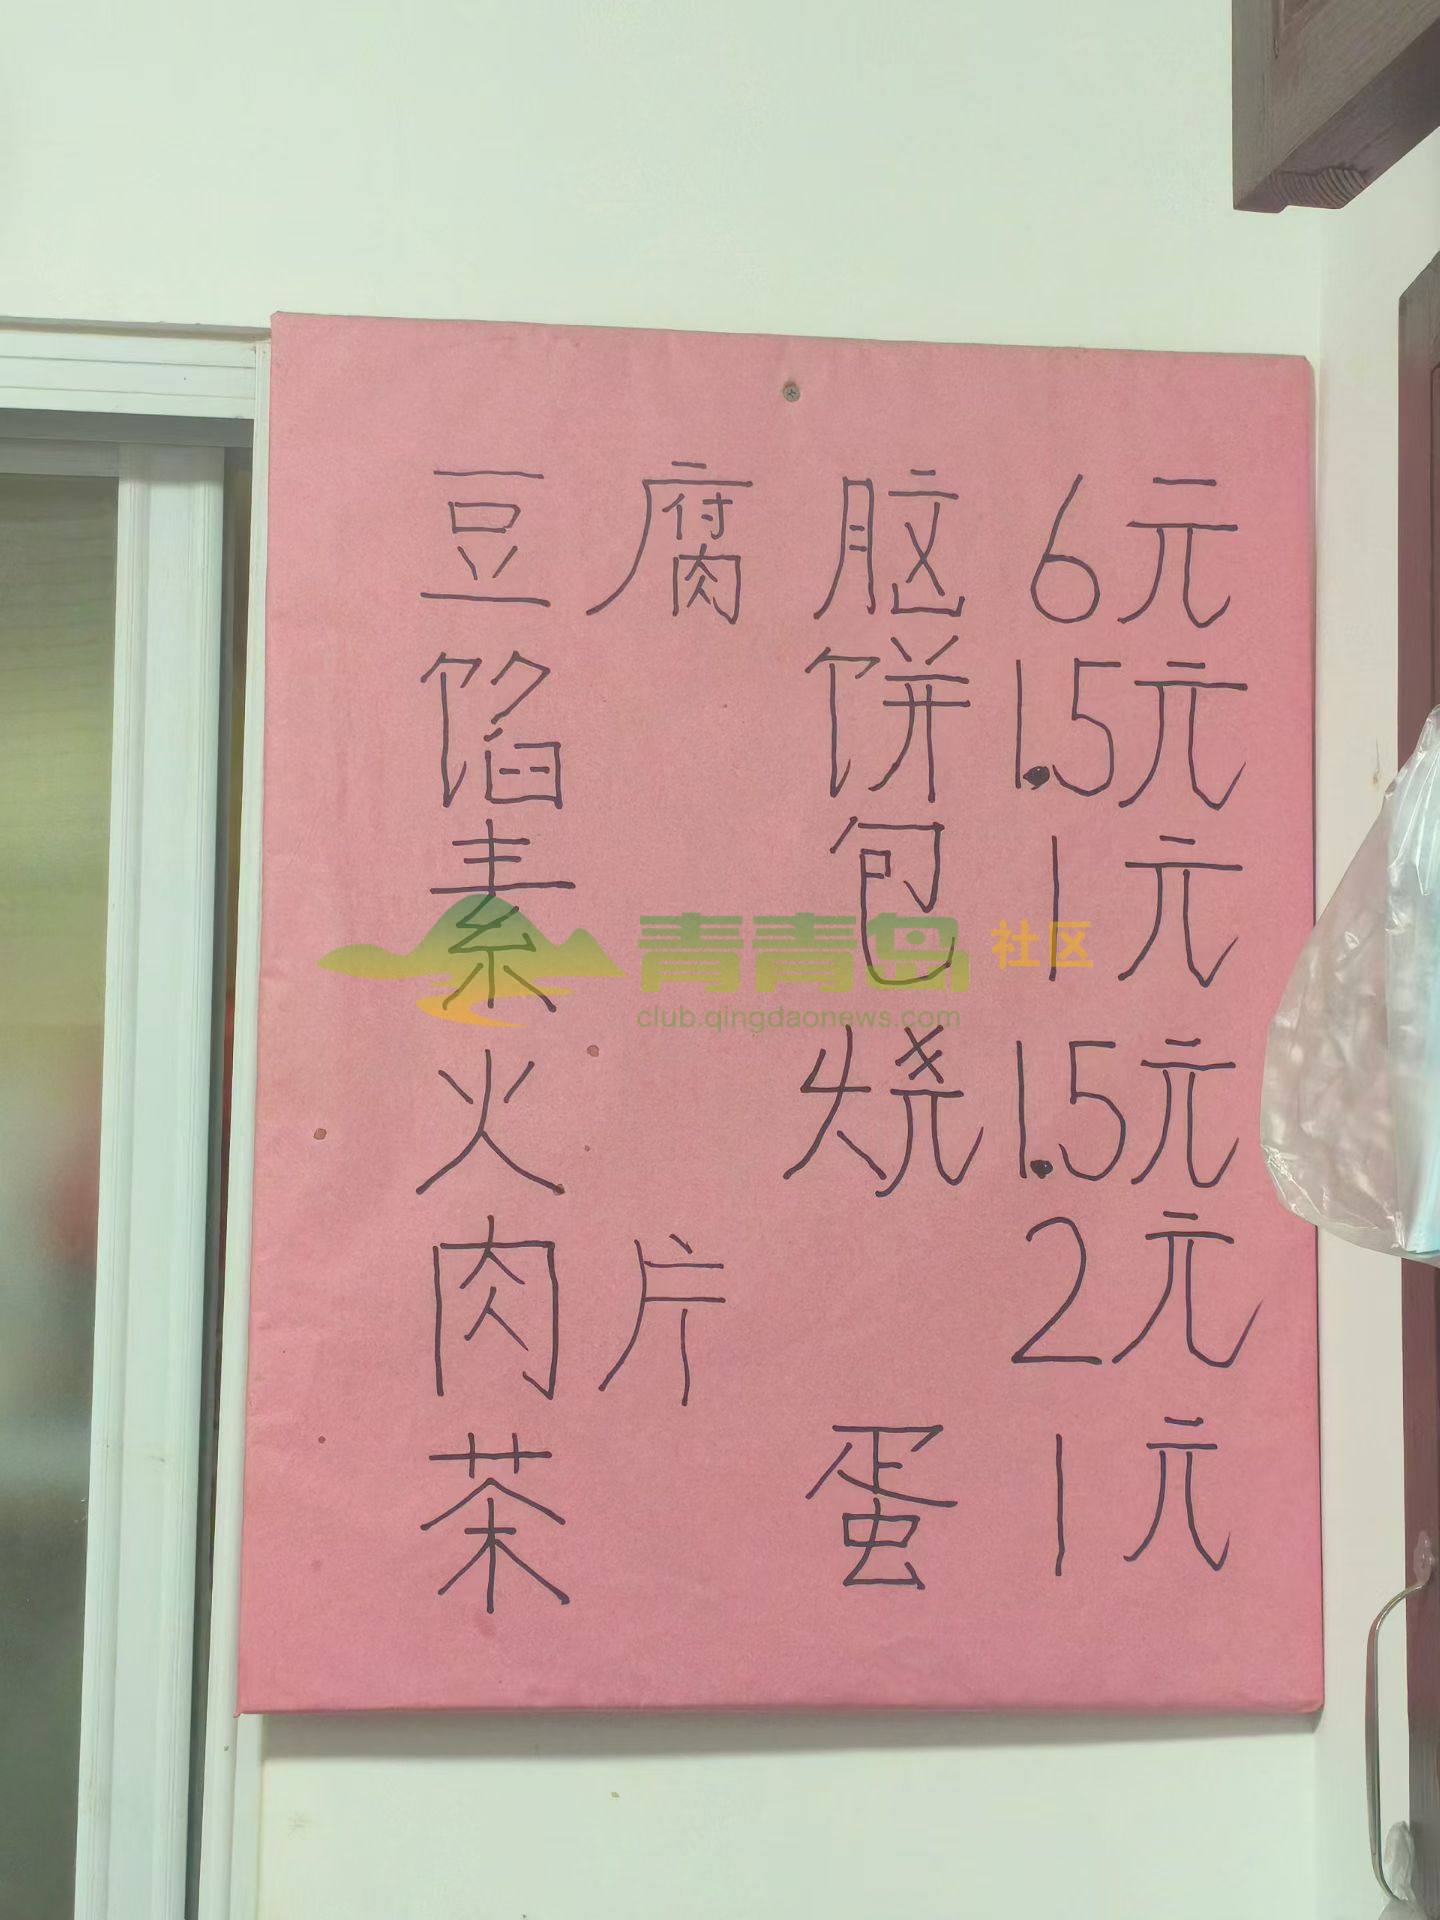 豆腐脑 6元
馅饼 1.5元
素包 1元
青青岛社区
club.qingdaonews.com
火烧 1.5元
肉片 2元
茶蛋 1元